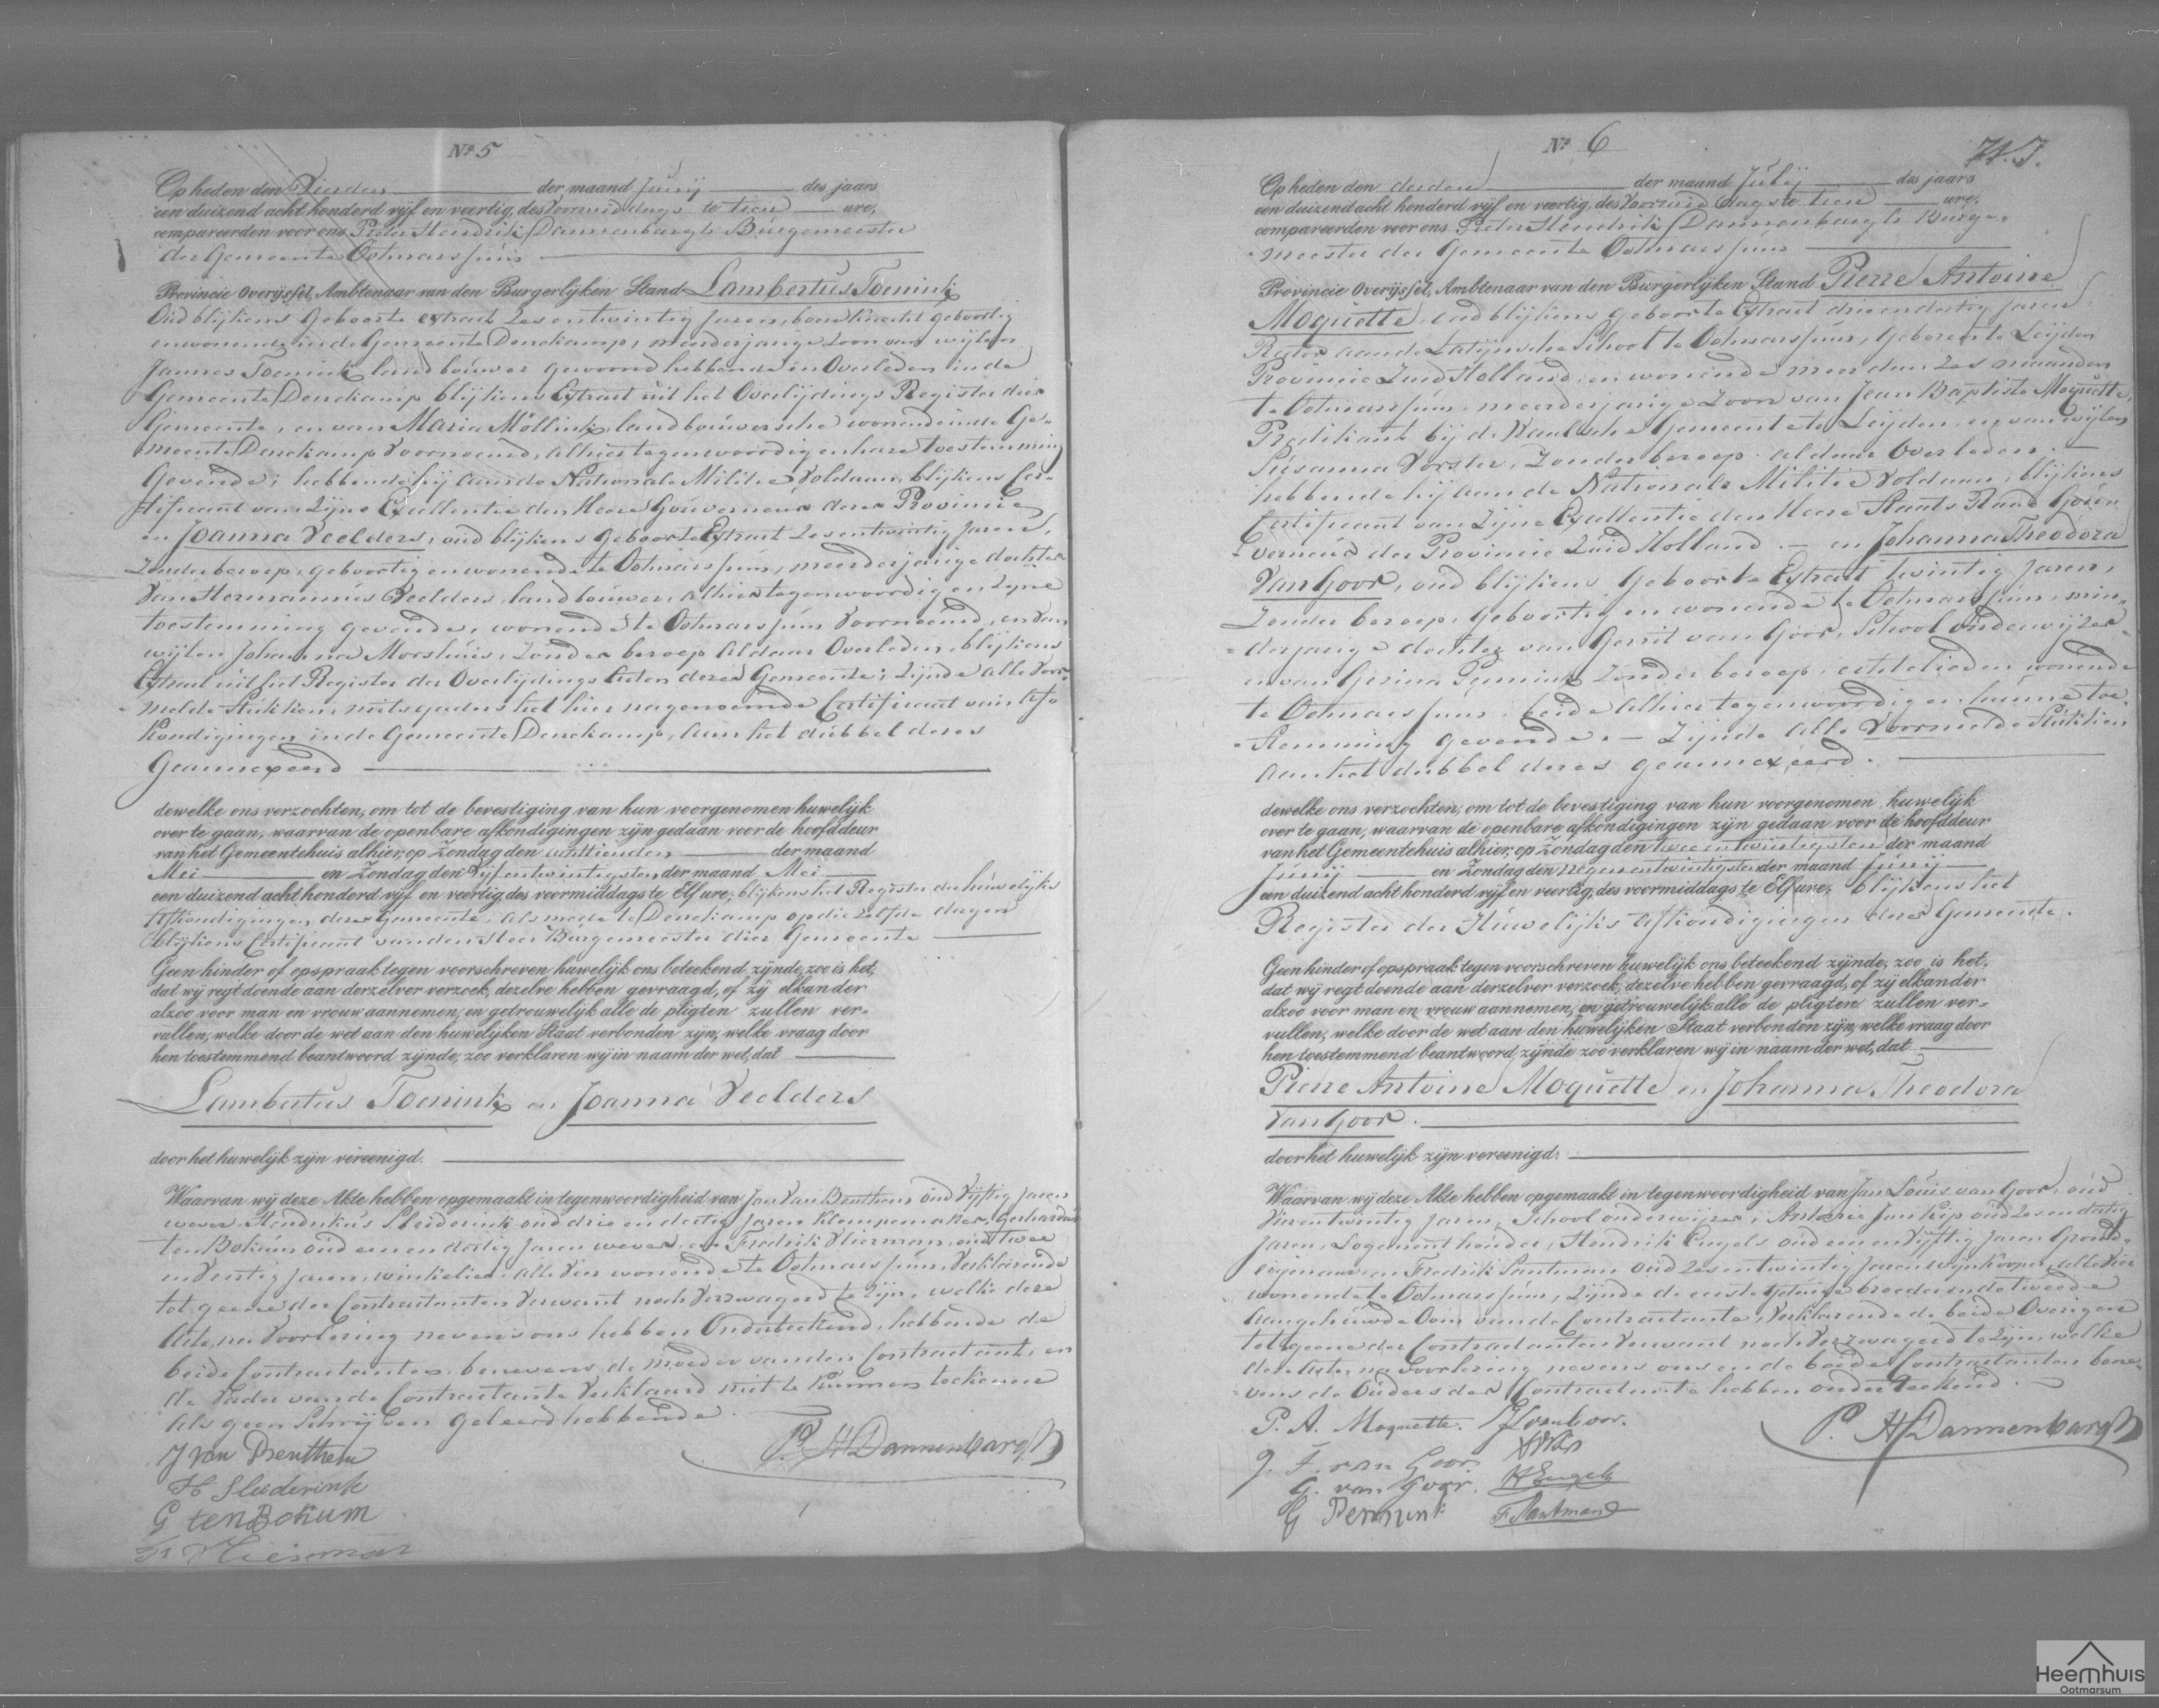 Nº 5
Op heden den Vierden der maand Junij des jaars
een duizend acht honderd vijf en veertig, des Voormiddags te tien ure,
compareerden voor ons Pieter Hendrik Dannenbargh Burgemeester
der Gemeente Ootmarssum
Provincie Overijssel, Ambtenaar van den Burgerlijken Stand Lambertus Toenink
Oud blijkens Geboorte extract Zes en twintig Jaren, boere Knecht geboortig
en wonende in de Gemeente Denekamp, meerderjarige Zoon van wijlen
Jannes Toenink landbouwer gewoond hebbende en Overleden in de
Gemeente Denekamp blijkens Extract uit het Overlijdings Register dier
Gemeente, en van Maria Möllink, landbouwersche wonende in de Ge-
meente Denekamp Voornoemd, alhier tegenwoordig en hare toestemming
Gevende; hebbende hij aan de Nationale Militie Voldaan, blijkens Cer-
tificaat van Zijne Excellentie den Heere Gouverneur dezer Provincie
en Joanna Veelders, oud blijkens Geboorte Extract Zes en twintig Jaren,
Zonder beroep, geboortig en wonende te Ootmarssum, meerderjarige dochter
Van Hermannus Veelders, landbouwer, alhier tegenwoordig en zijne
toestemming gevende, wonende te Ootmarssum Voornoemd, en van
wijlen Johanna Morshuis, Zonder beroep aldaar Overleden, blijkens
Extract uit het Register der Overlijdings Acten dezer Gemeente; Zijnde alle Voor-
melde Stukken, mitsgaders het hier nagenoemde Certificaat van Af-
Kondigingen in de Gemeente Denekamp, aan het dubbel dezes
Geannexeerd
dewelke ons verzochten, om tot de bevestiging van hun voorgenomen huwelijk
over te gaan, waarvan de openbare afkondigingen zijn gedaan voor de hoofddeur
van het Gemeentehuis alhier, op Zondag den achttienden der maand
Mei en Zondag den Vijfentwintigsten der maand Mei
een duizend acht honderd vijf en veertig, des voormiddags te Elf ure, blijkens het Register der huwelijks
Afkondigingen, dezer Gemeente, als mede te Denekamp op die zelfde dagen
blijkens Certificaat van den Heer Burgemeester dier Gemeente
Geen hinder of opspraak tegen voorschreven huwelijk ons beteekend zijnde, zoo is het,
dat wij regt doende aan derzelver verzoek, dezelve hebben gevraagd, of zij elkander
alzoo voor man en vrouw aannemen, en getrouwelijk alle de pligten zullen ver-
vullen, welke door de wet aan den huwelijken Staat verbonden zijn, welke vraag door
hen toestemmend beantwoord zijnde, zoo verklaren wij in naam der wet, dat
Lambertus Toenink en Joanna Veelders
door het huwelijk zijn vereenigd.
Waarvan wij deze Akte hebben opgemaakt in tegenwoordigheid van Jan Van Benthem oud Vijftig Jaren
wever, Hendrikus Sleiderink oud drie en dertig Jaren Klompemaker, Gerhardus
ten Bokum oud een en dertig Jaren wever, en Fredrik Vlierman, oud twee
en Veertig Jaren, winkelier, alle Vier wonende te Ootmarssum, Verklarende
tot geene der Contractanten Verwant noch Verzwagerd te zijn, welke deze
Acte, na Voorlezing nevens ons hebben Onderteekend, hebbende de
beide Contractanten, benevens de moeder van den Contractant, en
de Vader van de Contractante Verklaard niet te Kunnen teekenen
als geen Schrijven geleerd hebbende.
J van Benthem
P. H Dannenbargh
H Sleiderink
G ten Bokum
Fr Vlierman
Nº 6
Op heden den derden der maand Julij des jaars
een duizend acht honderd vijf en veertig, des Voormiddags te tien ure,
compareerden voor ons Pieter Hendrik Dannenbargh Burge-
meester der Gemeente Ootmarssum
Provincie Overijssel, Ambtenaar van den Burgerlijken Stand Pierre Antoine
Moquette, oud blijkens geboorte Extract drie en dertig Jaren
Rector aan de Latijnsche School te Ootmarssum, geboren te Leijden
Provincie Zuid Holland, en wonende meer dan Zes maanden
te Ootmarssum, meerderjarige Zoon van Jean Baptiste Moquette,
Predikant bij de Waalsche Gemeente te Leijden, en van wijlen
Susanna Vorster, Zonder beroep aldaar Overleden.
hebbende hij aan de Nationale Militie Voldaan, blijkens
Certificaat van Zijne Excellentie den Heere Staats Raad Gou-
verneur der Provincie Zuid Holland. — en Johanna Theodora
Van Goor, oud blijkens Geboorte Extract twintig Jaren,
Zonder beroep, geboortig en wonende te Ootmarssum, min-
derjarige dochter van Gerrit van Goor, School onderwijzer
en van Gerina Pennink Zonder beroep, echtelieden wonende
te Ootmarssum, beide alhier tegenwoordig en hunne toe-
stemming gevende. — Zijnde alle Voormelde Stukken
aan het dubbel dezes geannexeerd.
dewelke ons verzochten, om tot de bevestiging van hun voorgenomen huwelijk
over te gaan, waarvan de openbare afkondigingen zijn gedaan voor de hoofddeur
van het Gemeentehuis alhier, op Zondag den twee en twintigsten der maand
Junij en Zondag den negen entwintigsten der maand Junij
een duizend acht honderd vijf en veertig, des voormiddags te Elf ure, blijkens het
Register der Huwelijks Afkondigingen dezer Gemeente.
Geen hinder of opspraak tegen voorschreven huwelijk ons beteekend zijnde, zoo is het,
dat wij regt doende aan derzelver verzoek, dezelve hebben gevraagd, of zij elkander
alzoo voor man en vrouw aannemen, en getrouwelijk alle de pligten zullen ver-
vullen, welke door de wet aan den huwelijken Staat verbonden zijn, welke vraag door
hen toestemmend beantwoord zijnde zoo verklaren wij in naam der wet, dat
Pierre Antoine Moquette en Johanna Theodora
Van Goor.
door het huwelijk zijn vereenigd.
Waarvan wij deze Akte hebben opgemaakt in tegenwoordigheid van Jan Louis van Goor, oud
Vier en twintig Jaren, School onderwijzer, Antonie Jan Kip oud Zes en dertig
Jaren, Logement houder, Hendrik Engels oud een en Vijftig Jaren Grond-
eigenaar en Fredrik Santman oud Zes en twintig Jaren Wijnkooper, alle Vier
wonende te Ootmarssum, Zijnde de eerste Getuige broeder en de tweede
Aangehuwde Oom van de Contractante, Verklarende de beide Overigen
tot geene der Contractanten Verwant noch Verzwagerd te zijn, welke
deze Acte, na Voorlezing nevens ons en de beide Contractanten bene-
vens de Ouders der Contractante hebben onderteekend.
P. A. Moquette. J L van Goor.
P. H Dannenbargh
J. T. van Goor
G. van Goor. H Engels
G Pennink F Santman
Heemhuis
Ootmarsum